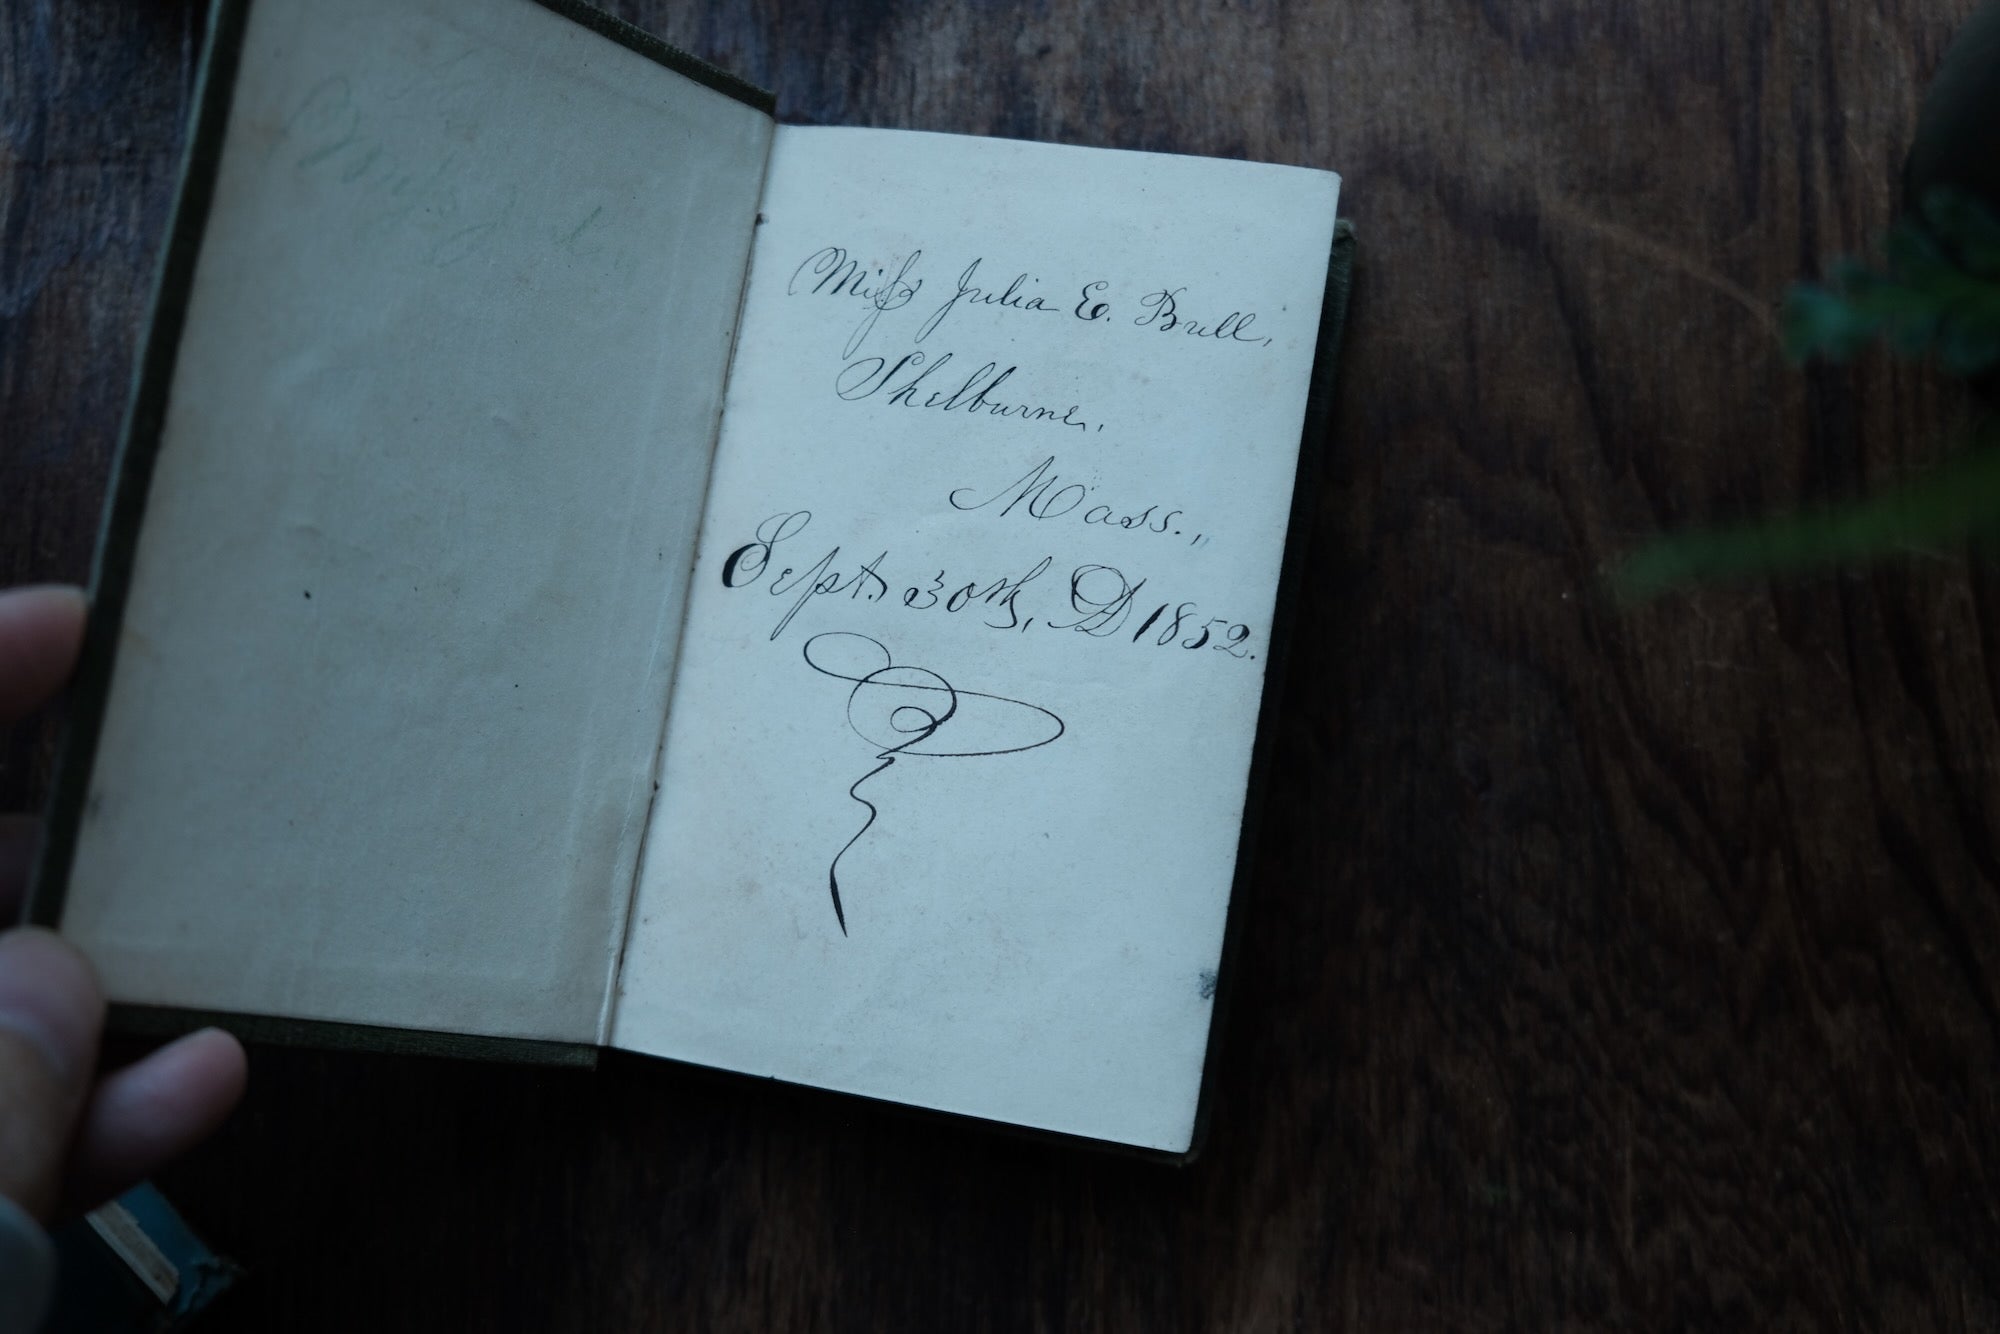 Miſs Julia E. Bull,
Shelburne,
Mass.,
Sept. 30th, AD 1852.